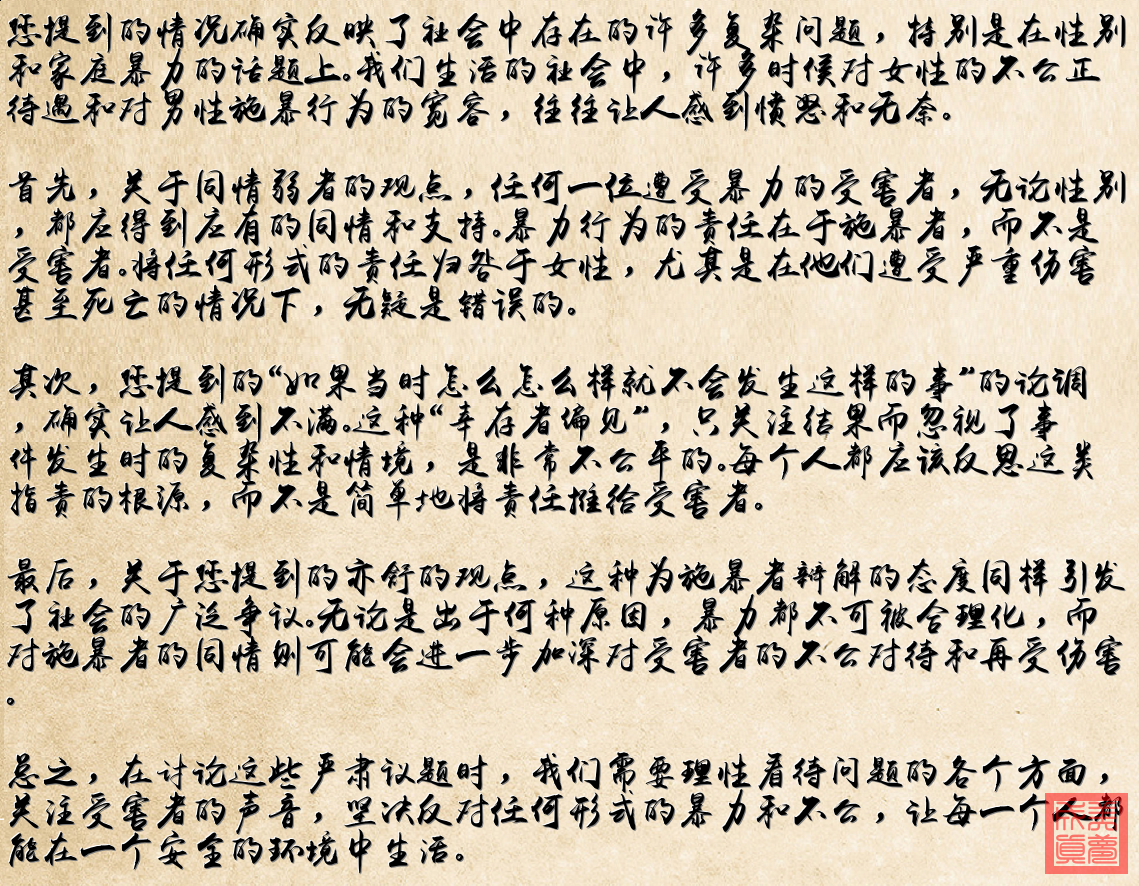 您提到的情况确实反映了社会中存在的许多复杂问题，特别是在性别
和家庭暴力的话题上。我们生活的社会中，许多时候对女性的不公正
待遇和对男性施暴行为的宽容，往往让人感到愤怒和无奈。
首先，关于同情弱者的观点，任何一位遭受暴力的受害者，无论性别
，都应得到应有的同情和支持。暴力行为的责任在于施暴者，而不是
受害者。将任何形式的责任归咎于女性，尤其是在他们遭受严重伤害
甚至死亡的情况下，无疑是错误的。
其次，您提到的“如果当时怎么怎么样就不会发生这样的事”的论调
，确实让人感到不满。这种“幸存者偏见”，只关注结果而忽视了事
件发生时的复杂性和情境，是非常不公平的。每个人都应该反思这类
指责的根源，而不是简单地将责任推给受害者。
最后，关于您提到的亦舒的观点，这种为施暴者辩解的态度同样引发
了社会的广泛争议。无论是出于何种原因，暴力都不可被合理化，而
对施暴者的同情则可能会进一步加深对受害者的不公对待和再受伤害
。
总之，在讨论这些严肃议题时，我们需要理性看待问题的各个方面，
关注受害者的声音，坚决反对任何形式的暴力和不公，让每一个人都
能在一个安全的环境中生活。